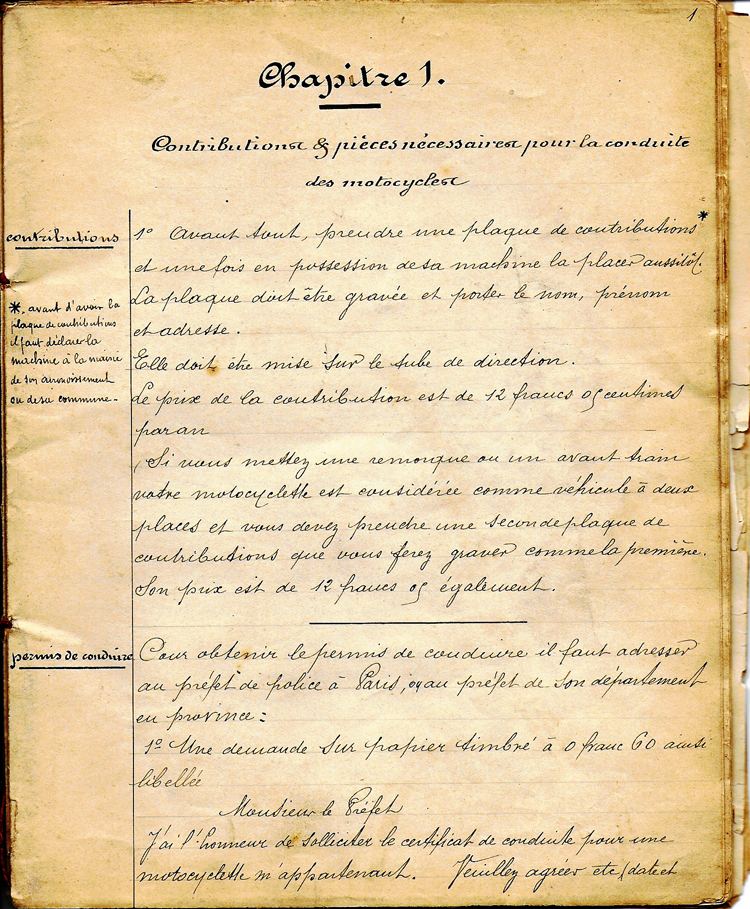 1
Chapitre 1.
Contributions & pièces nécessaires pour la conduite
des motocycles
contributions
*. avant d'avoir la
plaque de contributions
il faut déclarer la
machine à la mairie
de son arrondissement
ou de sa commune -
1º Avant tout, prendre une plaque de contributions *
et une fois en possession de sa machine la placer aussitôt.
La plaque doit être gravée et porter le nom, prénom
et adresse.
Elle doit être mise sur le tube de direction.
Le prix de la contribution est de 12 francs 05 centimes
par an
(Si vous mettez une remorque ou un avant train
votre motocyclette est considérée comme véhicule à deux
places et vous devez prendre une seconde plaque de
contributions que vous ferez graver comme la première.
Son prix est de 12 francs 05 également.
permis de conduire
Pour obtenir le permis de conduire il faut adresser
au préfet de police à Paris, ou au préfet de son département
en province :
1º Une demande sur papier timbré à 0 franc 60 ainsi
libellée
Monsieur le Préfet
J'ai l'honneur de solliciter le certificat de conduite pour une
motocyclette m'appartenant. Veuillez agréer etc (date et